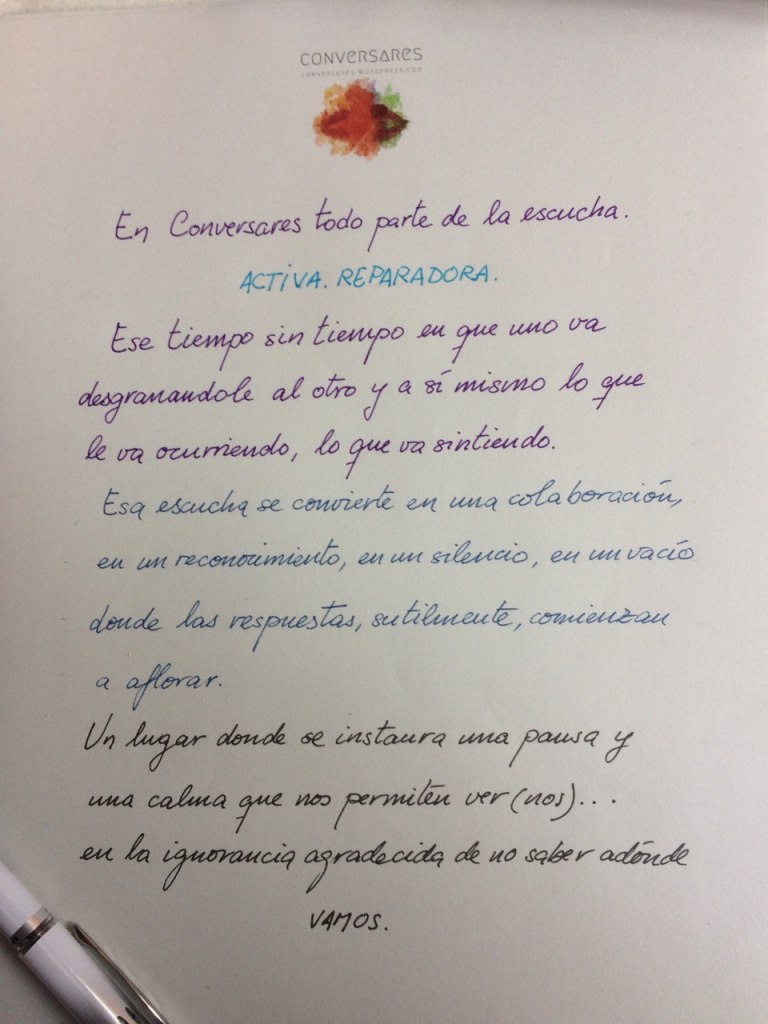 CONVERSARES
CONVERSARES.WORDPRESS.COM
En Conversares todo parte de la escucha.
ACTIVA. REPARADORA.
Ese tiempo sin tiempo en que uno va
desgranandole al otro y a sí mismo lo que
le va ocurriendo, lo que va sintiendo.
Esa escucha se convierte en una colaboración,
en un reconocimiento, en un silencio, en un vacío
donde las respuestas, sutilmente, comienzan
a aflorar.
Un lugar donde se instaura una pausa y
una calma que nos permiten ver (nos)...
en la ignorancia agradecida de no saber adónde
VAMOS.